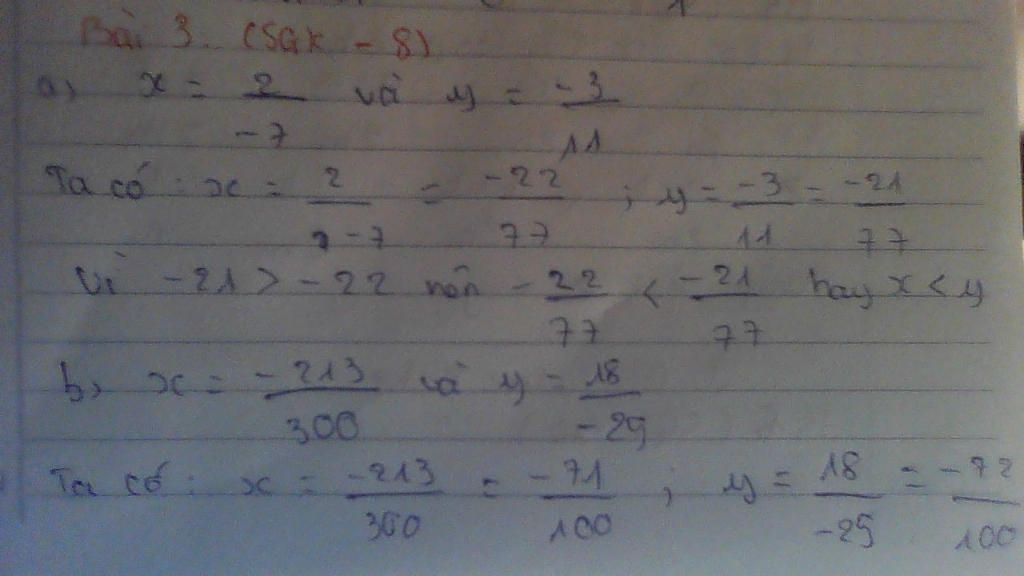 Bài 3. (SGK - 8)
a, x = 2/-7 và y = -3/11
Ta có : x = 2/-7 = -22/77 ; y = -3/11 = -21/77
Vì -21 > -22 nên -22/77 < -21/77 hay x < y
b, x = -213/300 và y = 18/-25
Ta có : x = -213/300 = -71/100 ; y = 18/-25 = -72/100